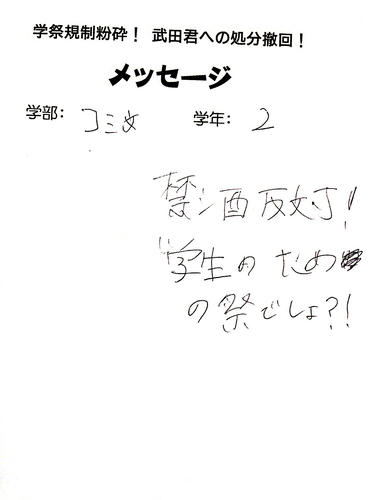 学祭規制粉砕! 武田君への処分撤回!
メッセージ
学部: コミ文 学年: 2
禁酒反対!
学生のため
の祭でしょ?!